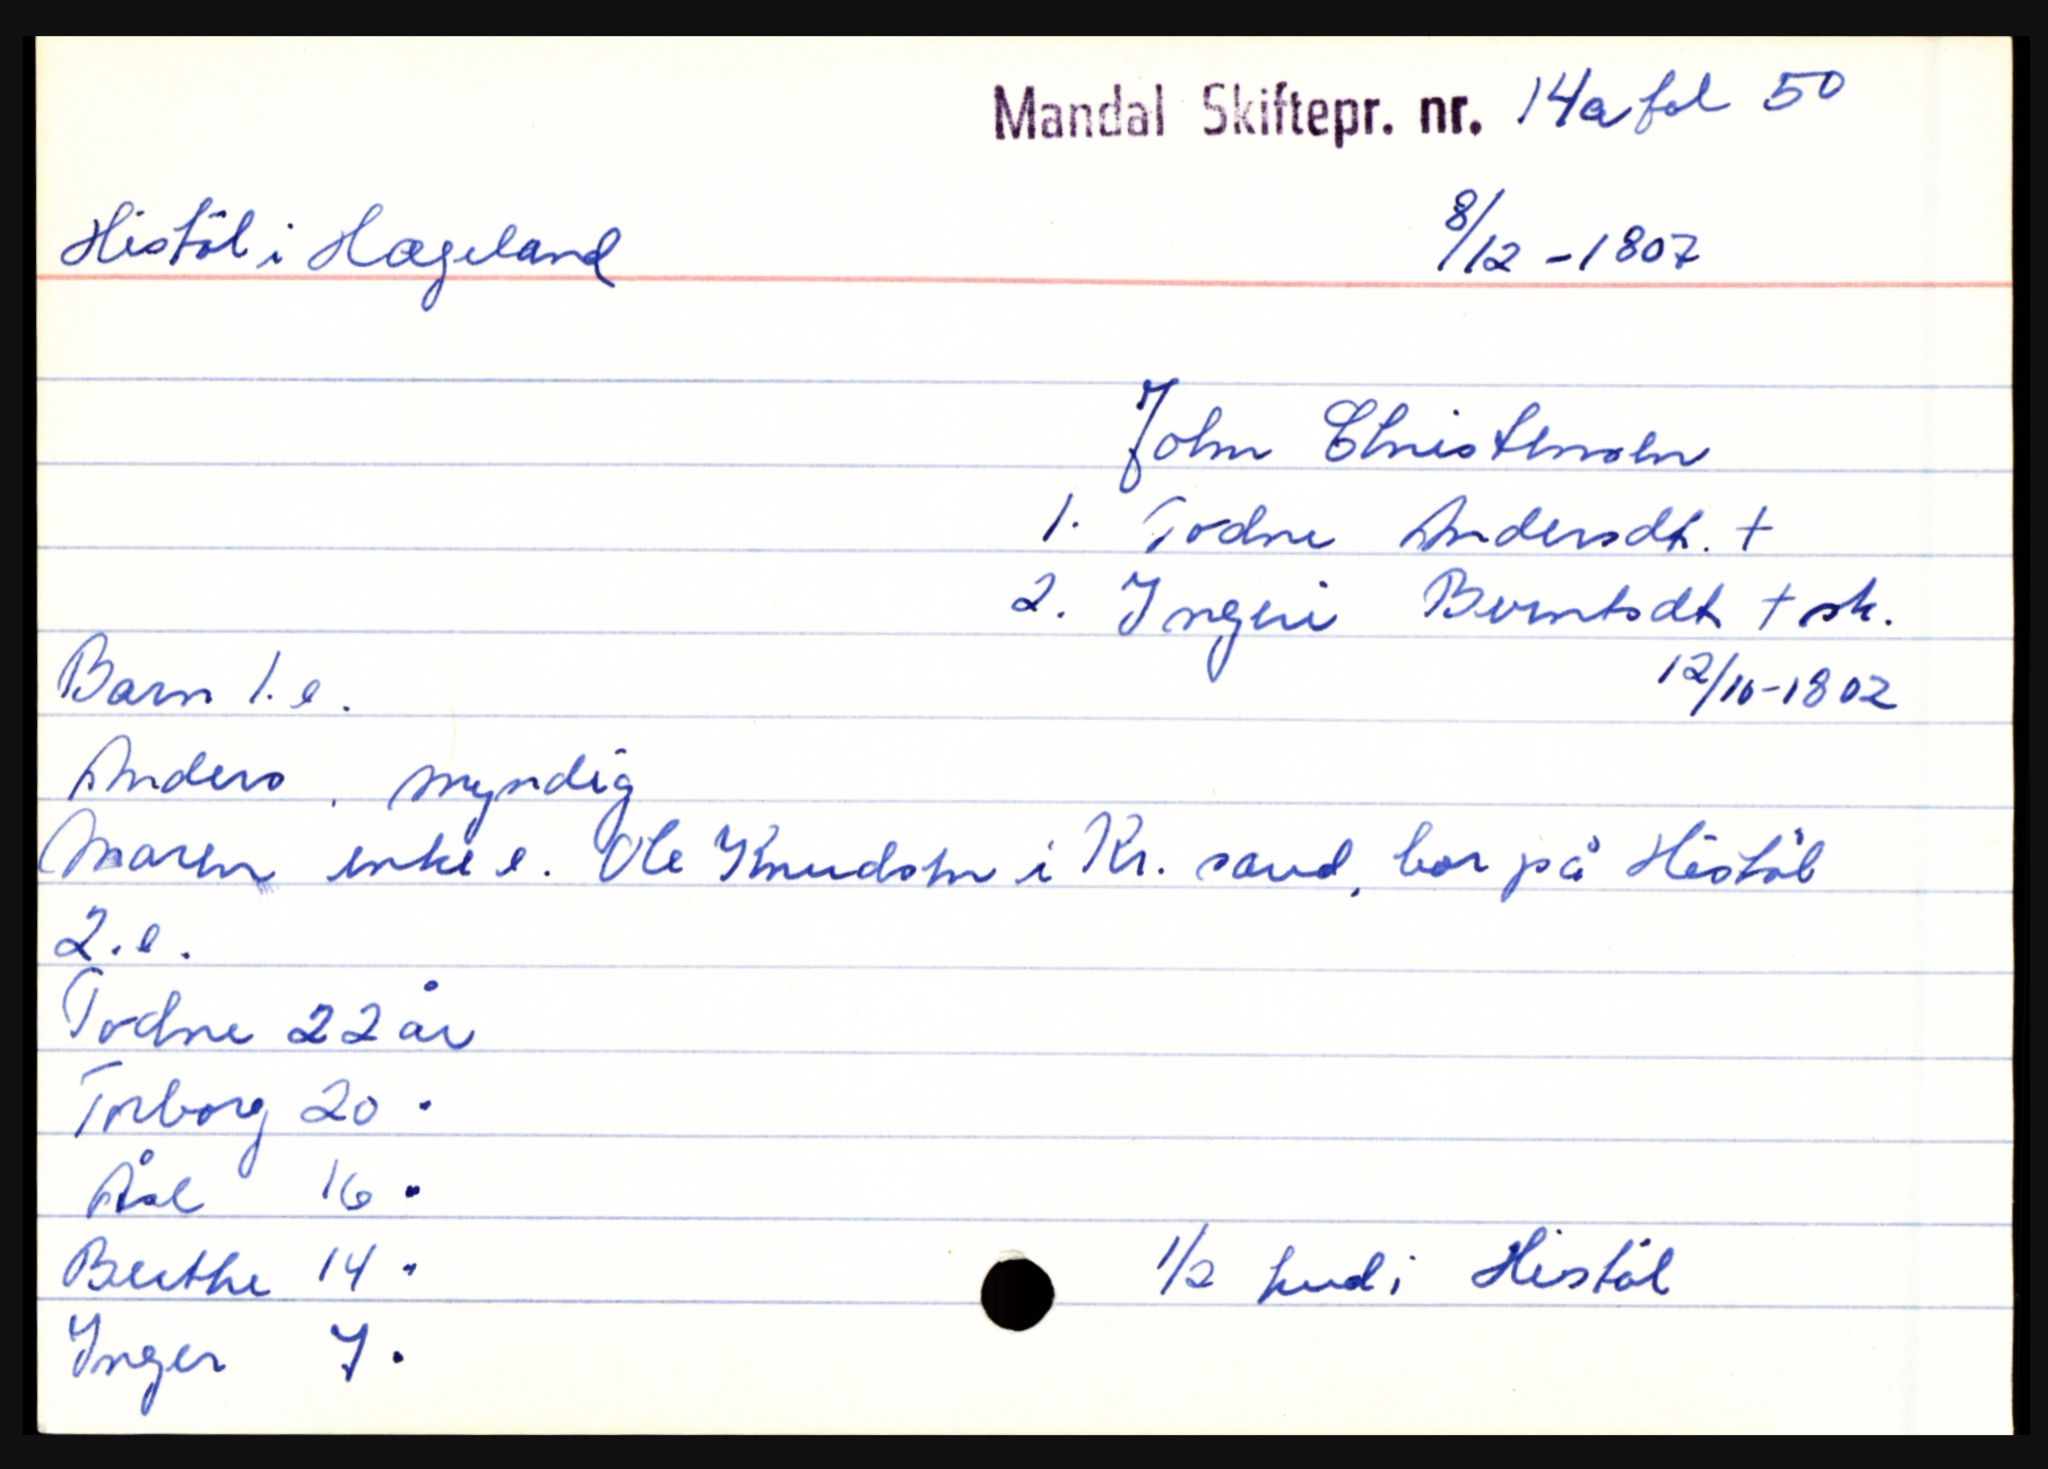 Mandal Skiftepr. nr. 14a fol 50
Histöl i Hægeland 8/12 - 1807
John Christensen
1. Todne Andersdt. +
2. Ingeri Berntsdt + sk.
12/10-1802
Barn 1. e.
Anders, myndig
Maren enke e. Ole Knudsen i Kr. sand, bor på Histöl
2. e.
Todne 22 år
Torborg 20 "
Åsl 16 "
Berthe 14 "
1/2 hud i Histöl
Inger 7 "